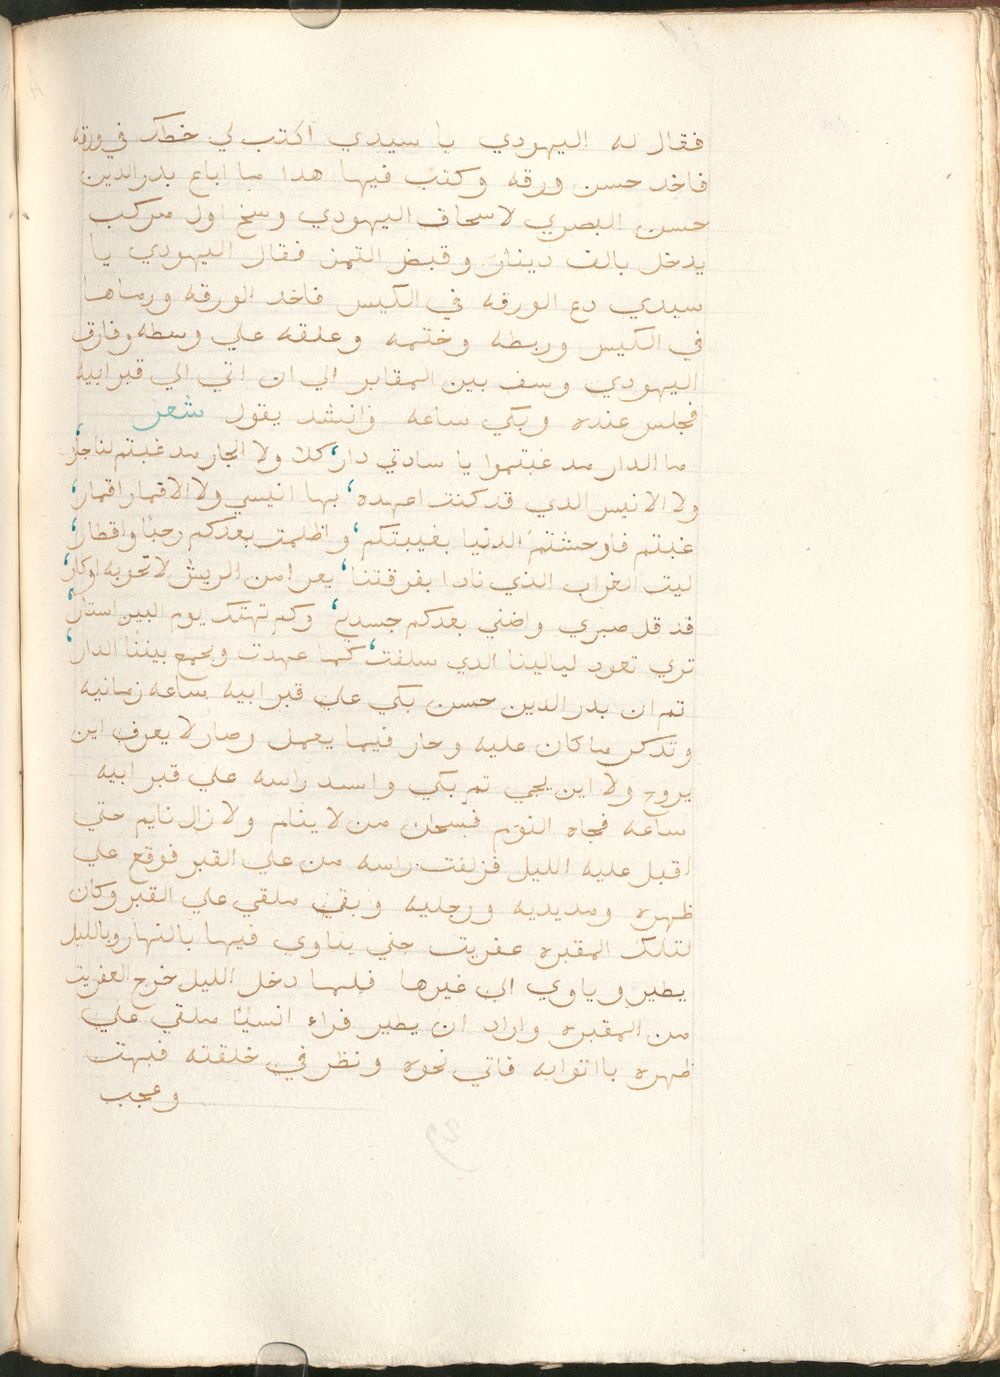 فقال له اليهودي يا سيدي اكتب لي خطك في ورقه
فاخد حسن ورقه وكتب فيها هدا ما اباع بدر الدين
حسن البصري لاسحاق اليهودي وسخ اول مركب
يدخل بالف دينار وقبض التمن فقال اليهودي يا
سيدي دع الورقه في الكيس فاخد الورقه ورماها
في الكيس وربطه وختمه وعلقه علي وسطه وفارق
اليهودي وسف بين المقابر الي ان اتي الي قبر ابيه
فجلس عنده وبكي ساعه وانشد يقول شعر
ما الدار مد غبتموا يا سادتي دار، كلا ولا الجار مد غبتم لنا جار
ولا الانيس الدي قد كنت اعهده، بها انيسي ولا الاقمار اقمار،
غبتم فاوحشتم الدنيا بغيبتكم، واظلمت بعدكم رحبًا واقطار،
ليت الغراب الذي نادا بفرقتنا، يعرا من الريش لا تحويه اوكار،
قد قل صبري واضني بعدكم جسدي، وكم تهتك يوم البين استار،
تري تعود ليالينا الدي سلفت، كما عهدت ويجمع بيننا الدار،
تم ان بدر الدين حسن بكي علي قبر ابيه ساعه زمانيه
وتدكر ما كان عليه وحار فيما يعمل وصار لا يعرف اين
يروح ولا اين يجي تم بكي واسند راسه علي قبر ابيه
ساعه فجاه النوم فسبحان من لا ينام ولا زال نايم حتي
اقبل عليه الليل فزلفت راسه من علي القبر فوقع علي
ظهره ومد يديه ورجليه وبقي ملقي علي القبر وكان
لتلك المقبره عفريت جني يتاوي فيها بالنهار وبالليل
يطير وياوي الي غيرها فلما دخل الليل خرج العفريت
من المقبره واراد ان يطير فراء انسيًا ملقي علي
ظهره بااتوابه فاتي نحوه ونظر في خلقته فبهت
وعجب